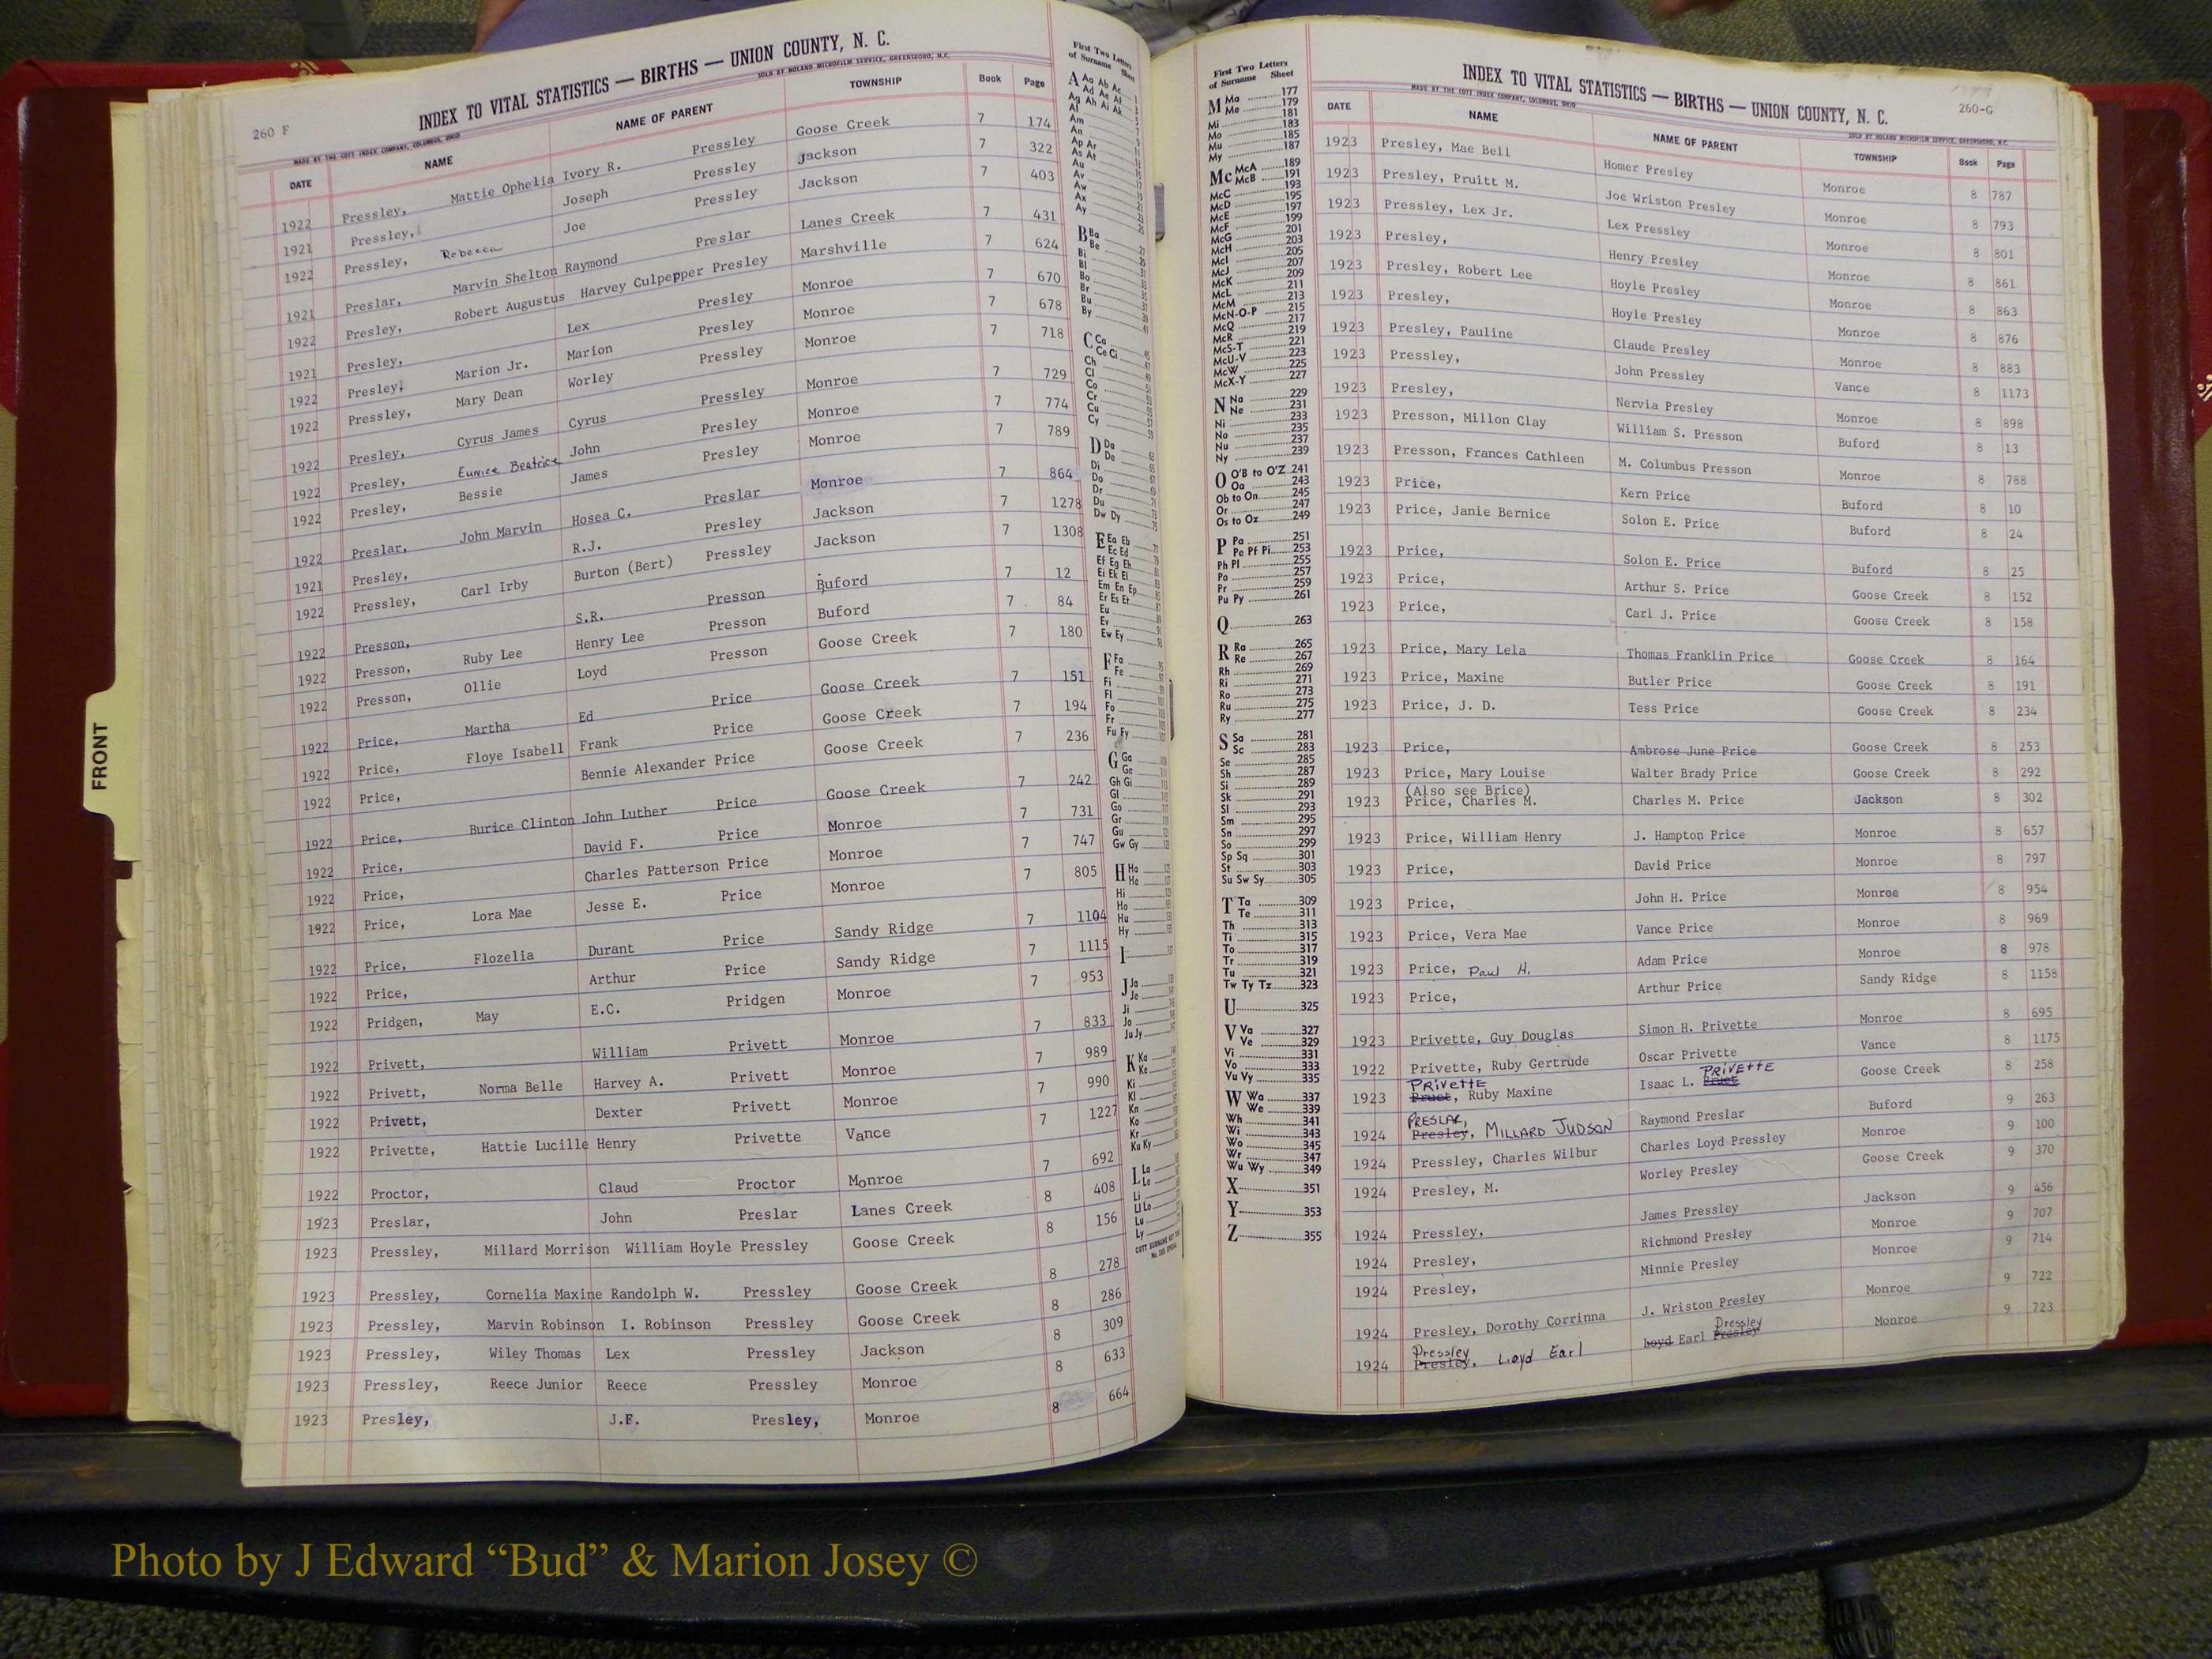 260 F
INDEX TO VITAL STATISTICS — BIRTHS — UNION COUNTY, N. C.
MADE BY THE COTT INDEX COMPANY, COLUMBUS, OHIO SOLD BY NOLAND MICROFILM SERVICE, GREENSBORO, N.C.
DATE NAME NAME OF PARENT TOWNSHIP Book Page
1922 Pressley, Mattie Ophelia Ivory R. Pressley Goose Creek 7 174
1921 Pressley, Joseph Pressley Jackson 7 322
1922 Pressley, Rebecca Joe Pressley Jackson 7 403
1921 Preslar, Marvin Shelton Raymond Preslar Lanes Creek 7 431
1922 Presley, Robert Augustus Harvey Culpepper Presley Marshville 7 624
1921 Presley, Lex Presley Monroe 7 670
1922 Presley, Marion Jr. Marion Presley Monroe 7 678
1922 Pressley, Mary Dean Worley Pressley Monroe 7 718
1922 Presley, Cyrus James Cyrus Pressley Monroe 7 729
1922 Presley, Eunice Beatrice John Presley Monroe 7 774
1922 Presley, Bessie James Presley Monroe 7 789
1922 Preslar, John Marvin Hosea C. Preslar Monroe 7 864
1921 Presley, R.J. Presley Jackson 7 1278
1922 Pressley, Carl Irby Burton (Bert) Pressley Jackson 7 1308
1922 Presson, S.R. Presson Buford 7 12
1922 Presson, Ruby Lee Henry Lee Presson Buford 7 84
1922 Presson, Ollie Loyd Presson Goose Creek 7 180
1922 Price, Martha Ed Price Goose Creek 7 151
1922 Price, Floye Isabell Frank Price Goose Creek 7 194
1922 Price, Bennie Alexander Price Goose Creek 7 236
1922 Price, Burice Clinton John Luther Price Goose Creek 7 242
1922 Price, David F. Price Monroe 7 731
1922 Price, Charles Patterson Price Monroe 7 747
1922 Price, Lora Mae Jesse E. Price Monroe 7 805
1922 Price, Flozelia Durant Price Sandy Ridge 7 1104
1922 Price, Arthur Price Sandy Ridge 7 1115
1922 Pridgen, May E.C. Pridgen Monroe 7 953
1922 Privett, William Privett Monroe 7 833
1922 Privett, Norma Belle Harvey A. Privett Monroe 7 989
1922 Privett, Dexter Privett Monroe 7 990
1922 Privette, Hattie Lucille Henry Privette Vance 7 1227
1922 Proctor, Claud Proctor Monroe 7 692
1923 Preslar, John Preslar Lanes Creek 8 408
1923 Pressley, Millard Morrison William Hoyle Pressley Goose Creek 8 156
1923 Pressley, Cornelia Maxine Randolph W. Pressley Goose Creek 8 278
1923 Pressley, Marvin Robinson I. Robinson Pressley Goose Creek 8 286
1923 Pressley, Wiley Thomas Lex Pressley Jackson 8 309
1923 Pressley, Reece Junior Reece Pressley Monroe 8 633
1923 Presley, J.F. Presley, Monroe 8 664
FRONT
First Two Letters
of Surname Sheet
A Aa Ab Ac
Ad Ae Af
Ag Ah Ai Ak
Al
Am
An
Ap Ar
As At
Au
Av
Aw
Ax
Ay
B Ba
Be
Bi
Bl
Bo
Br
Bu
By
C Ca
Ce Ci
Ch
Cl
Co
Cr
Cu
Cy
D Da
De
Di
Do
Dr
Du
Dw Dy
E Ea Eb
Ec Ed
Ef Eg Eh
Ei Ek El
Em En Ep
Er Es Et
Eu
Ev
Ew Ey
F Fa
Fe
Fi
Fl
Fo
Fr
Fu Fy
G Ga
Ge
Gh Gi
Gl
Go
Gr
Gu
Gw Gy
H Ha
He
Hi
Ho
Hu
Hy
I
J Ja
Je
Ji
Jo
Ju Jy
K Ka
Ke
Ki
Kl
Kn
Ko
Kr
Ku Ky
L La
Le
Li
Ll Lo
Lu
Ly
First Two Letters
of Surname Sheet
M Ma 177
Me 179
Mi 181
Mo 183
Mu 185
My 187
Mc McA 189
McB 191
McC 193
McD 195
McE 197
McF 199
McG 201
McH 203
McI 205
McJ 207
McK 209
McL 211
McM 213
McN-O-P 215
McQ 217
McR 219
McS-T 221
McU-V 223
McW 225
McX-Y 227
N Na 229
Ne 231
Ni 233
No 235
Nu 237
Ny 239
O O'B to O'Z 241
Oa 243
Ob to On 245
Or 247
Os to Oz 249
P Pa 251
Pe Pf Pi 253
Ph Pl 255
Po 257
Pr 259
Pu Py 261
Q 263
R Ra 265
Re 267
Rh 269
Ri 271
Ro 273
Ru 275
Ry 277
S Sa 281
Sc 283
Se 285
Sh 287
Si 289
Sk 291
Sl 293
Sm 295
Sn 297
So 299
Sp Sq 301
St 303
Su Sw Sy 305
T Ta 309
Te 311
Th 313
Ti 315
To 317
Tr 319
Tu 321
Tw Ty Tz 323
U 325
V Va 327
Ve 329
Vi 331
Vo 333
Vu Vy 335
W Wa 337
We 339
Wh 341
Wi 343
Wo 345
Wr 347
Wu Wy 349
X 351
Y 353
Z 355
260-G
INDEX TO VITAL STATISTICS — BIRTHS — UNION COUNTY, N. C.
MADE BY THE COTT INDEX COMPANY, COLUMBUS, OHIO SOLD BY NOLAND MICROFILM SERVICE, GREENSBORO, N.C.
DATE NAME NAME OF PARENT TOWNSHIP Book Page
1923 Presley, Mae Bell Homer Presley Monroe 8 787
1923 Presley, Pruitt M. Joe Wriston Presley Monroe 8 793
1923 Pressley, Lex Jr. Lex Pressley Monroe 8 801
1923 Presley, Henry Presley Monroe 8 861
1923 Presley, Robert Lee Hoyle Presley Monroe 8 863
1923 Presley, Hoyle Presley Monroe 8 876
1923 Presley, Pauline Claude Presley Monroe 8 883
1923 Pressley, John Pressley Vance 8 1173
1923 Presley, Nervia Presley Monroe 8 898
1923 Presson, Millon Clay William S. Presson Buford 8 13
1923 Presson, Frances Cathleen M. Columbus Presson Monroe 8 788
1923 Price, Kern Price Buford 8 10
1923 Price, Janie Bernice Solon E. Price Buford 8 24
1923 Price, Solon E. Price Buford 8 25
1923 Price, Arthur S. Price Goose Creek 8 152
1923 Price, Carl J. Price Goose Creek 8 158
1923 Price, Mary Lela Thomas Franklin Price Goose Creek 8 164
1923 Price, Maxine Butler Price Goose Creek 8 191
1923 Price, J. D. Tess Price Goose Creek 8 234
1923 Price, Ambrose June Price Goose Creek 8 253
1923 Price, Mary Louise Walter Brady Price Goose Creek 8 292
(Also see Brice)
1923 Price, Charles M. Charles M. Price Jackson 8 302
1923 Price, William Henry J. Hampton Price Monroe 8 657
1923 Price, David Price Monroe 8 797
1923 Price, John H. Price Monroe 8 954
1923 Price, Vera Mae Vance Price Monroe 8 969
1923 Price, Paul H. Adam Price Monroe 8 978
1923 Price, Arthur Price Sandy Ridge 8 1158
1923 Privette, Guy Douglas Simon H. Privette Monroe 8 695
1922 Privette, Ruby Gertrude Oscar Privette Vance 8 1175
PRIVETTE PRIVETTE
1923 Pruet, Ruby Maxine Isaac L. Pruet Goose Creek 8 258
PRESLAR,
1924 Presley, MILLARD JUDSON Raymond Preslar Buford 9 263
1924 Pressley, Charles Wilbur Charles Loyd Pressley Monroe 9 100
1924 Presley, M. Worley Presley Goose Creek 9 370
1924 Pressley, James Pressley Jackson 9 456
1924 Presley, Richmond Presley Monroe 9 707
1924 Presley, Minnie Presley Monroe 9 714
1924 Presley, Dorothy Corrinna J. Wriston Presley Monroe 9 722
Pressley Pressley
1924 Presley, Loyd Earl Loyd Earl Presley Monroe 9 723
Photo by J Edward “Bud” & Marion Josey ©